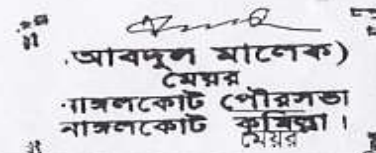 আবদুল মালেক)
মেয়র
নাঙ্গলকোট পৌরসভা
নাঙ্গলকোট কুমিল্লা।
মেয়র